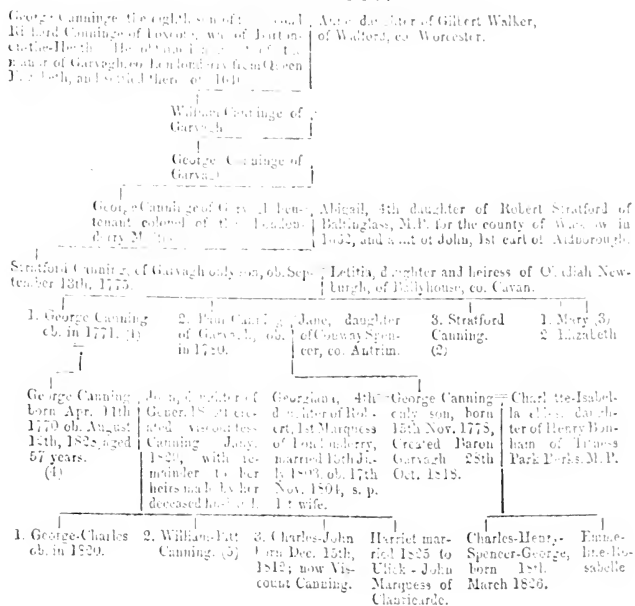 George Canninge the eighth son of
Richard Canninge of Foxcote,
manor of Garvagh, co. Londonderry from Queen
and settled there
Anne daughter of Gilbert Walker,
of Walford, co. Worcester.
William Canninge of
Garvagh
George Canninge of
Garvagh
George Canninge of Garvagh Lieu-
tenant colonel of the London-
derry Militia
Abigail, 4th daughter of Robert Stratford of
Baltinglass, M.P. for the county of Wicklow in
and aunt of John, 1st earl of Aldborough.
Stratford Canning, of Garvagh only son, ob. Sep-
tember 13th, 1775.
Letitia, daughter and heiress of Obadiah New-
burgh, of Ballyhouse, co. Cavan.
1. George Canning
ob. in 1771. (1)
2. Paul Canning
of Garvagh, ob.
in
Jane, daughter
of Conway Spen-
cer, co. Antrim.
3. Stratford
Canning.
(2)
1. Mary (3)
2 Elizabeth
George Canning
born Apr. 11th
1770 ob. August
aged
57 years.
(4)
Joan, daughter of
Gener.
Viscountess
Canning Jany.
with re-
mainder to her
heirs male by her
deceased husband.
Georgiana, 4th
daughter of Rob-
ert, 1st Marquess
of Londonderry,
married 13th Ju-
ly 1803, ob. 17th
Nov. 1804, s. p.
1st wife.
George Canning
only son, born
15th Nov. 1778,
Created Baron
Garvagh 28th
Oct. 1818.
Charlotte-Isabel-
la eldest daugh-
ter of Henry Bon-
ham of Titness
Park Berks. M.P.
1. George-Charles
ob. in 1820.
2. William-Pitt
Canning. (5)
3. Charles-John
born Dec. 15th,
1812; now Vis-
count Canning.
Harriet mar-
ried 1825 to
Ulick-John
Marquess of
Clanricarde.
Charles-Henry-
Spencer-George,
born 18th
March 1826.
Emme-
line-Ro-
sabelle